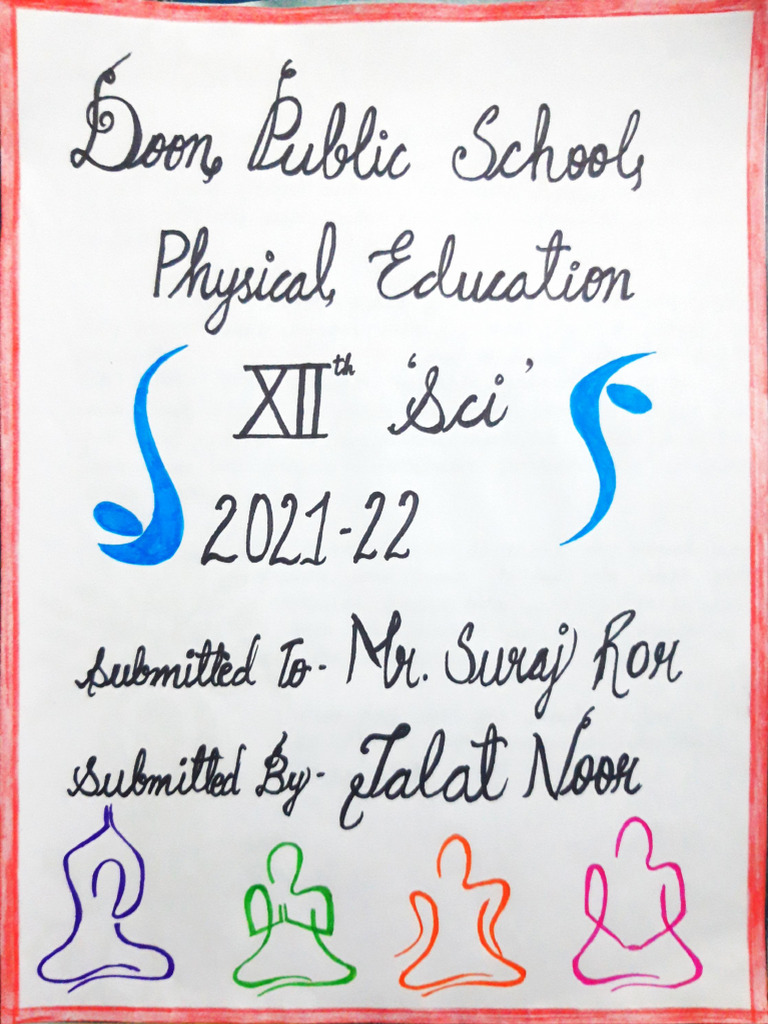 Doon Public School
Physical Education
XIIth 'Sci'
2021-22
Submitted To - Mr. Suraj Ror
Submitted By - Talat Noor